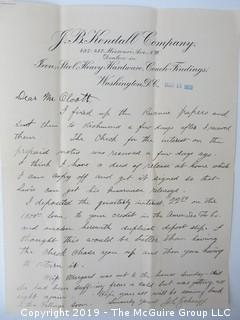 J. B. Kendall Company,
Dealers in
Iron, Steel, Heavy Hardware, Coach-Findings,
Washington, D.C.
Dear Mr
I fixed up the papers and
sent them to Richmond a few days after I received
them. The check for the interest on the
prepaid notes was received a few days ago
I think I have a deed of release at home which
I can copy off and get it signed so that
can get his releases.
I deposited the quarterly interest on the
loan, to your credit in the
and enclose herewith duplicate deposit slip. I
thought this would be better than having
the check chase you up and then your having
to return it.
Margaret was out to the house Sunday. She
had been suffering from a cold but was getting all
right again. Hope you all will be coming back
to the soon. Sincerely yours
Copyright 2019 - The McGuire Group LLC